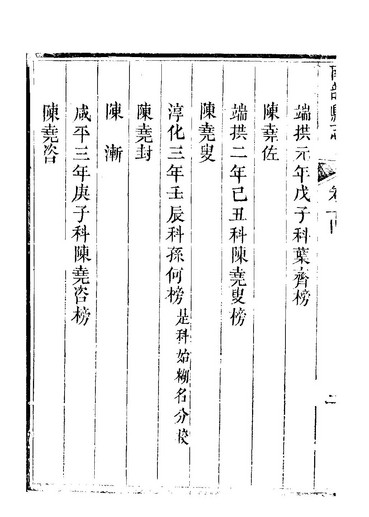 端拱元年戊子科葉齊榜
陳堯佐
端拱二年己丑科陳堯叟榜
陳堯叟
淳化三年壬辰科孫何榜 是科始糊名分校
陳堯封
陳漸
咸平三年庚子科陳堯咨榜
陳堯咨